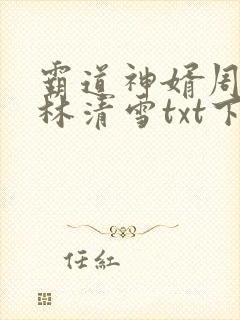 霸道神婿周
林清雪txt下
任紅